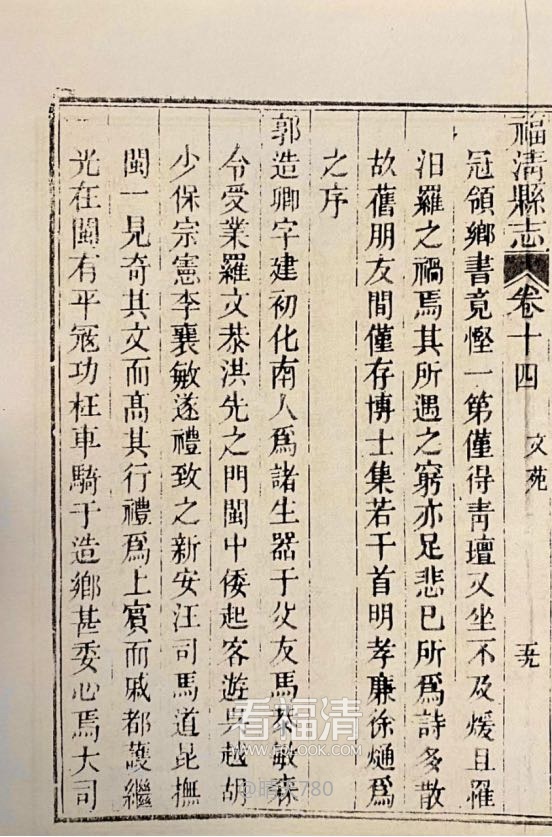 福清縣志 卷十四 文苑 五九
冠領鄉書竟慳一第僅得靑壇又坐不及煖且羅
汨羅之禍焉其所遇之窮亦足悲已所爲詩多散
故舊朋友間僅存博士集若干首明孝廉徐𤊹爲
之序
郭造卿字建初化南人爲諸生器于父友馬恭敏森
令受業羅文恭洪先之門閩中倭起客遊吳越胡
少保宗憲李襄敏遂禮致之新安汪司馬道昆撫
閩一見奇其文而高其行禮爲上賓而戚都護繼
光在閩有平冦功枉車騎于造鄉甚委心焉大司
看福清
WWW.FQLOOK.COM